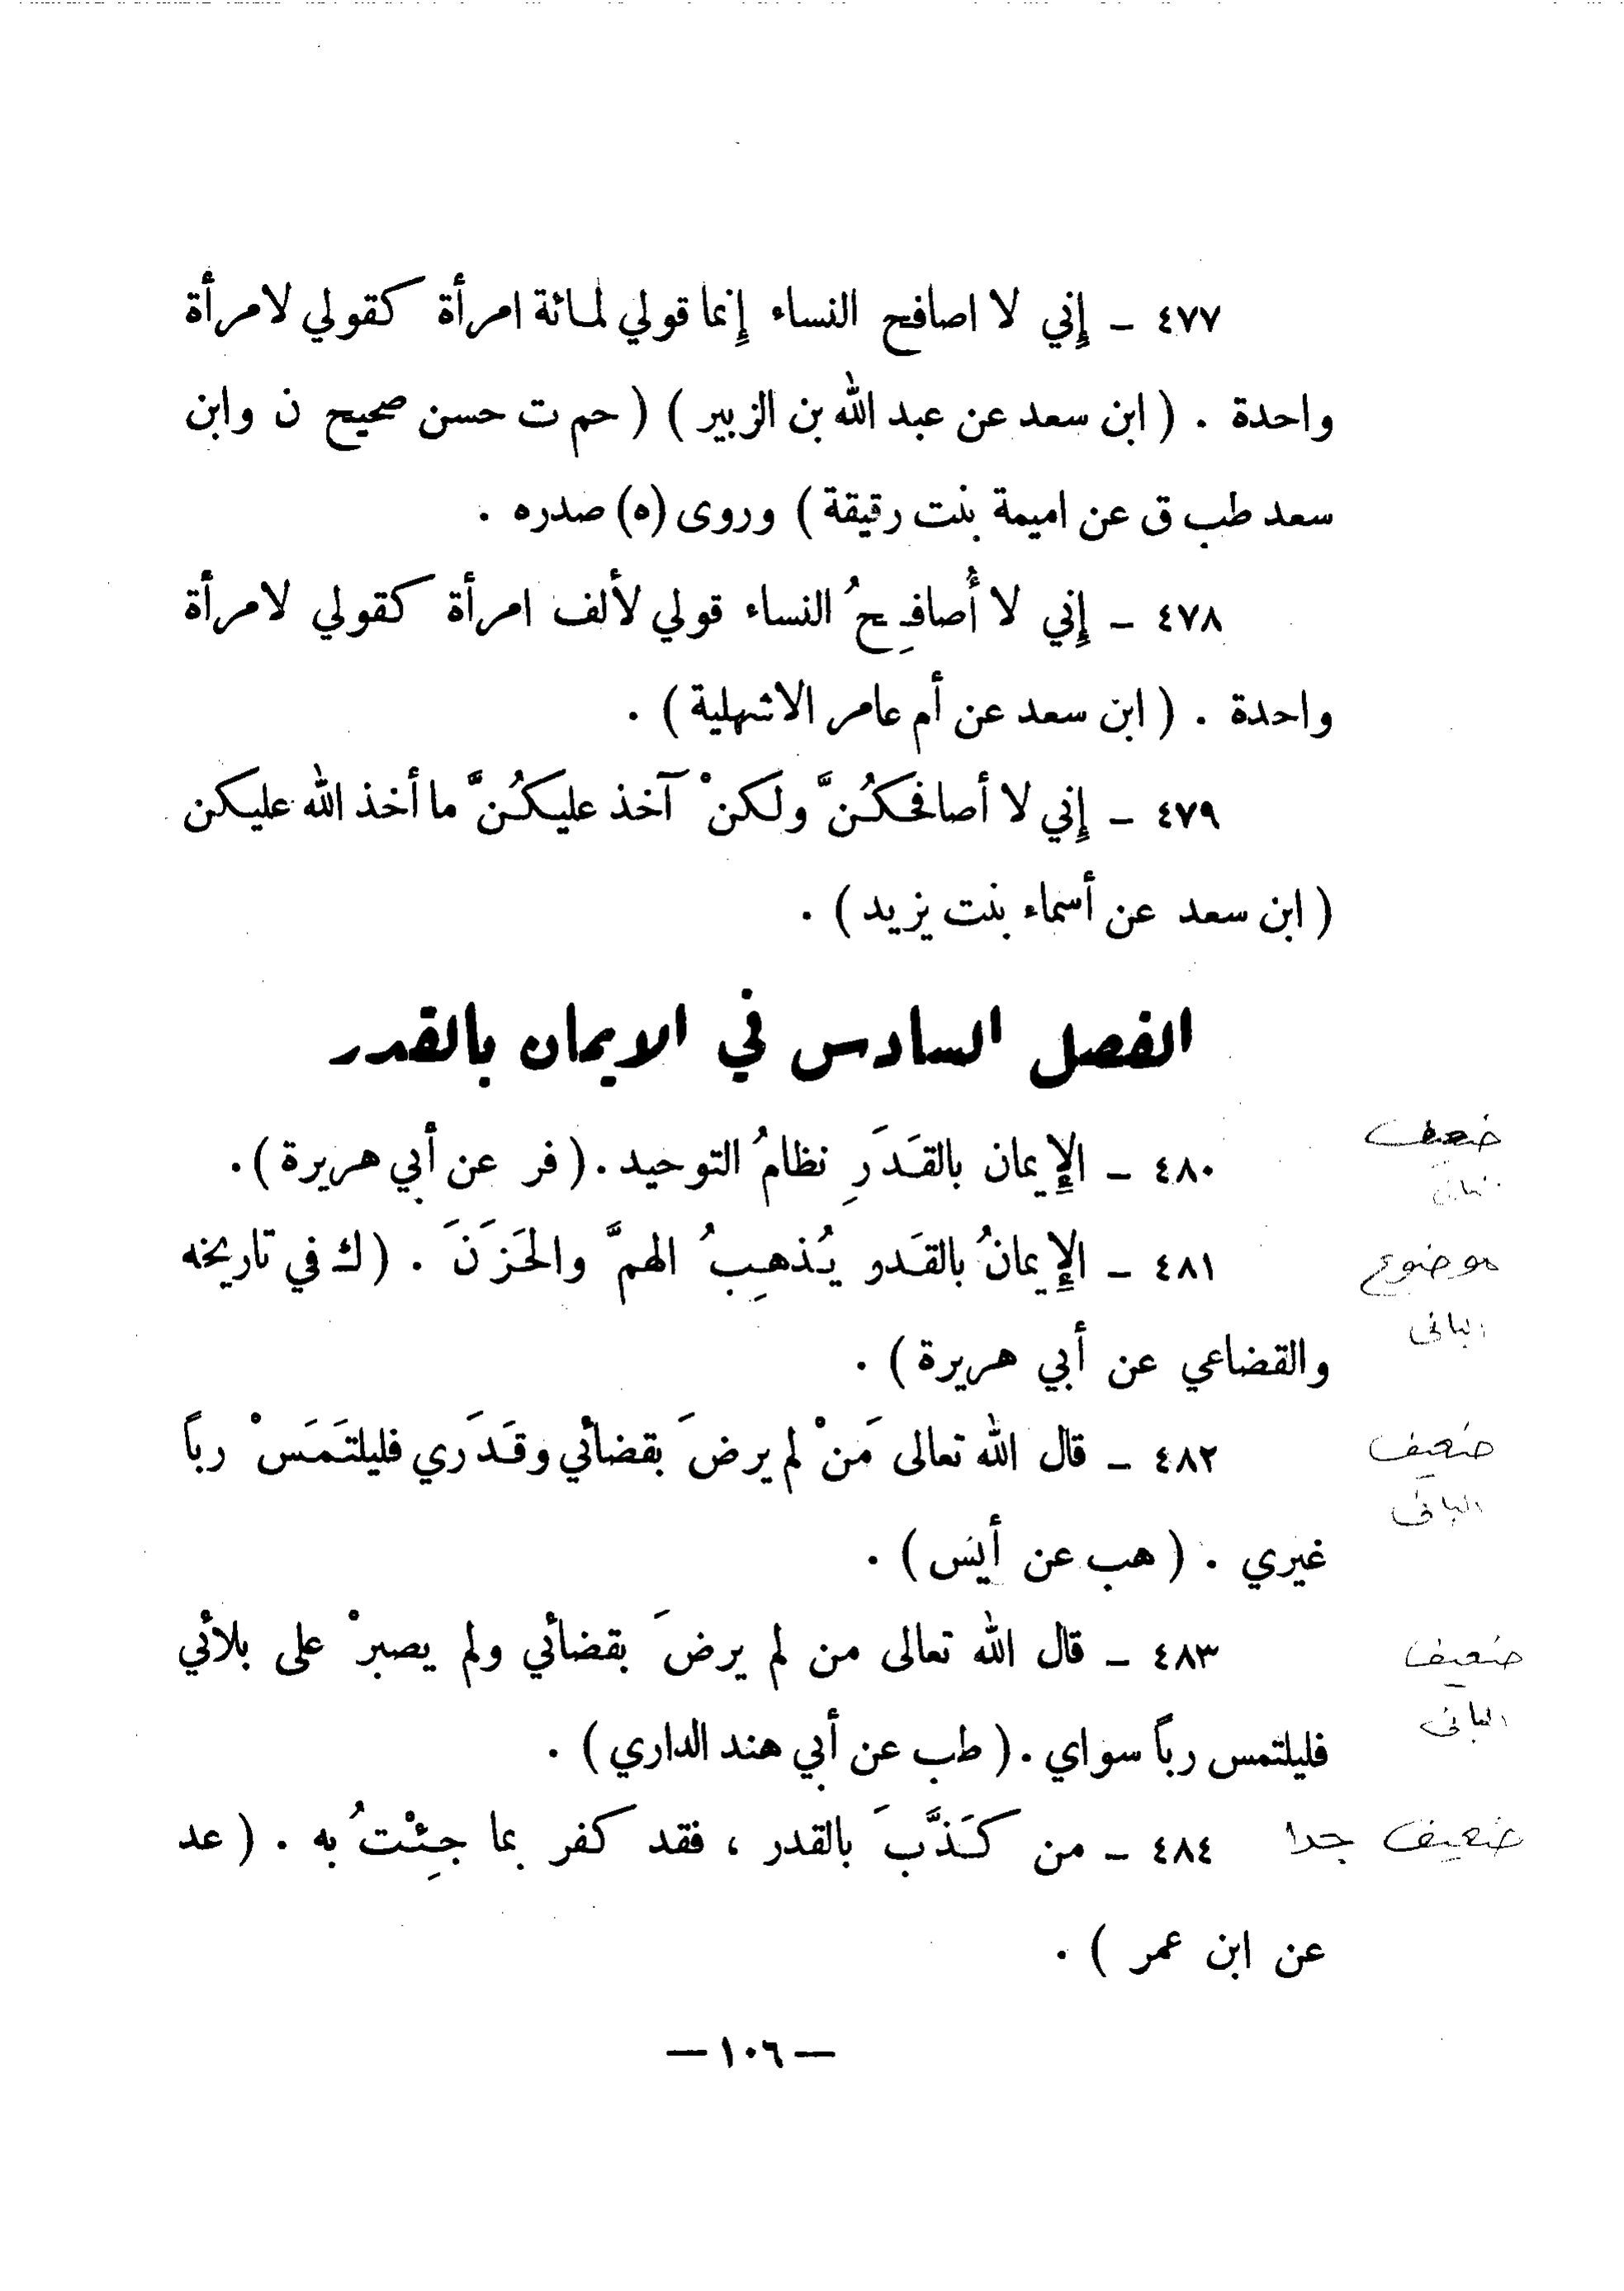 ٤٧٧ – إِني لا اصافح النساء إِنما قولي لمائة امرأة كقولي لامرأة
واحدة . ( ابن سعد عن عبد الله بن الزبير ) ( حم ت حسن صحيح ن وابن
سعد طب ق عن اميمة بنت رقيقة ) وروى (ه) صدره .
٤٧٨ – إِني لا أُصافِحُ النساء قولي لألف امرأة كقولي لامرأة
واحدة . ( ابن سعد عن أم عامر الاشهلية ) .
٤٧٩ – إِني لا أصافحكُنَّ ولكنْ آخذ عليكُنَّ ما أخذ الله عليكن
( ابن سعد عن أسماء بنت يزيد ) .
الفصل السادس في الايمان بالقدر
٤٨٠ – الإِيمان بالقَدَرِ نظامُ التوحيد . ( فر عن أبي هريرة ) .
ضعيف
٤٨١ – الإِيمانُ بالقَدو يُذهِبُ الهمَّ والحَزَنَ . ( ك في تاريخه
موضوع
البانى
والقضاعي عن أبي هريرة ) .
٤٨٢ – قال الله تعالى مَنْ لم يرضَ بقضائي وقَدَري فليلتَمَسْ رباً
ضعيف
البانى
غيري . ( هب عن أنس ) .
٤٨٣ – قال الله تعالى من لم يرضَ بقضائي ولم يصبرْ على بلائي
ضعيف
البانى
فليلتمس رباً سواي . ( طب عن أبي هند الداري ) .
٤٨٤ – من كَذَّبَ بالقدر ، فقد كفر بما جِئْتُ به . ( عد
ضعيف جدا
عن ابن عمر ) .
— ١٠٦ —